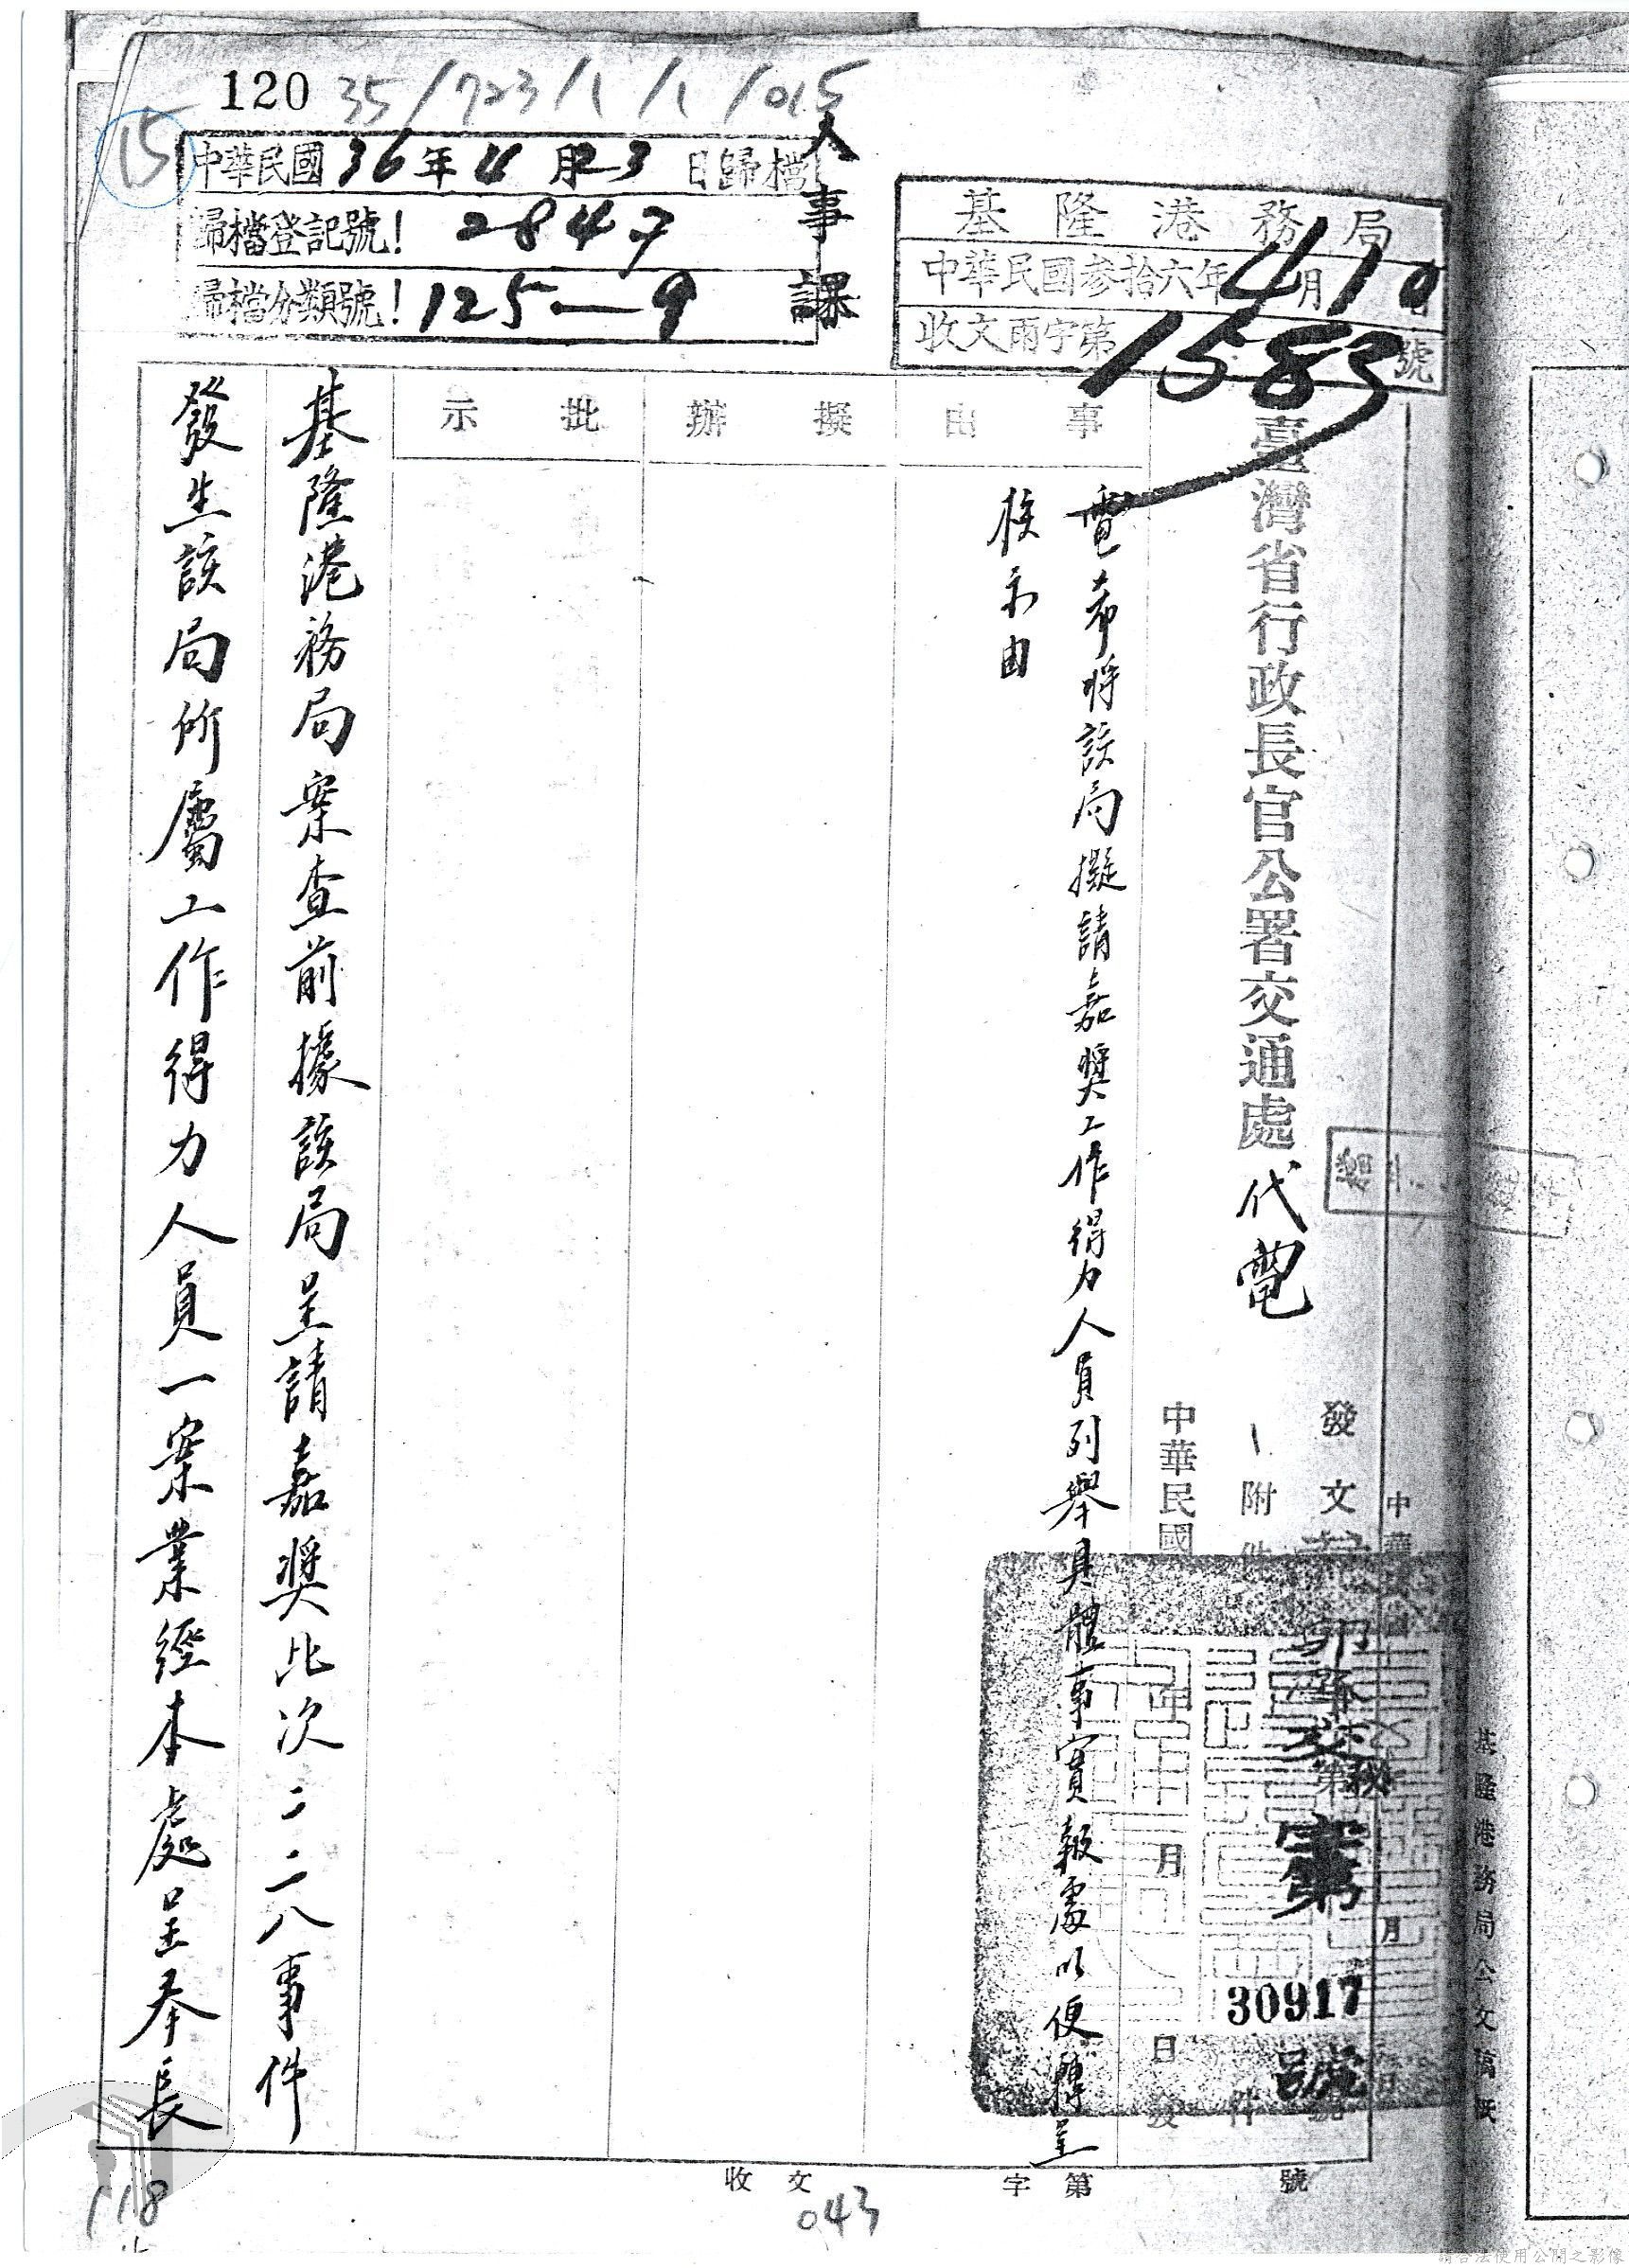 120
35/723/1/1/015
15
中華民國36年4月23日歸檔
歸檔登記號!2847
歸檔分類號!125—9
人事課
基隆港務局
中華民國參拾六年4月10
收文雨字第1583號
臺灣省行政長官公署交通處代電
發文
附件
中華民國
年
月
日
發
第
30917
號
事由
擬辦
批示
電希將該局擬請嘉獎工作得力人員列舉具體事實報處以便轉呈
核示由
基隆港務局案查前據該局呈請嘉獎此次二二八事件
發生該局所屬工作得力人員一案業經本處呈奉長
收文
字第
號
基隆港務局公文稿紙
118
043
請合法使用公開之影像